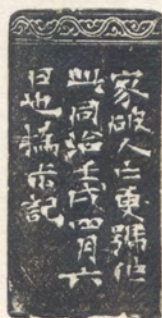 家破人亡更號作
此同治壬戌四月六
日也撝叔記